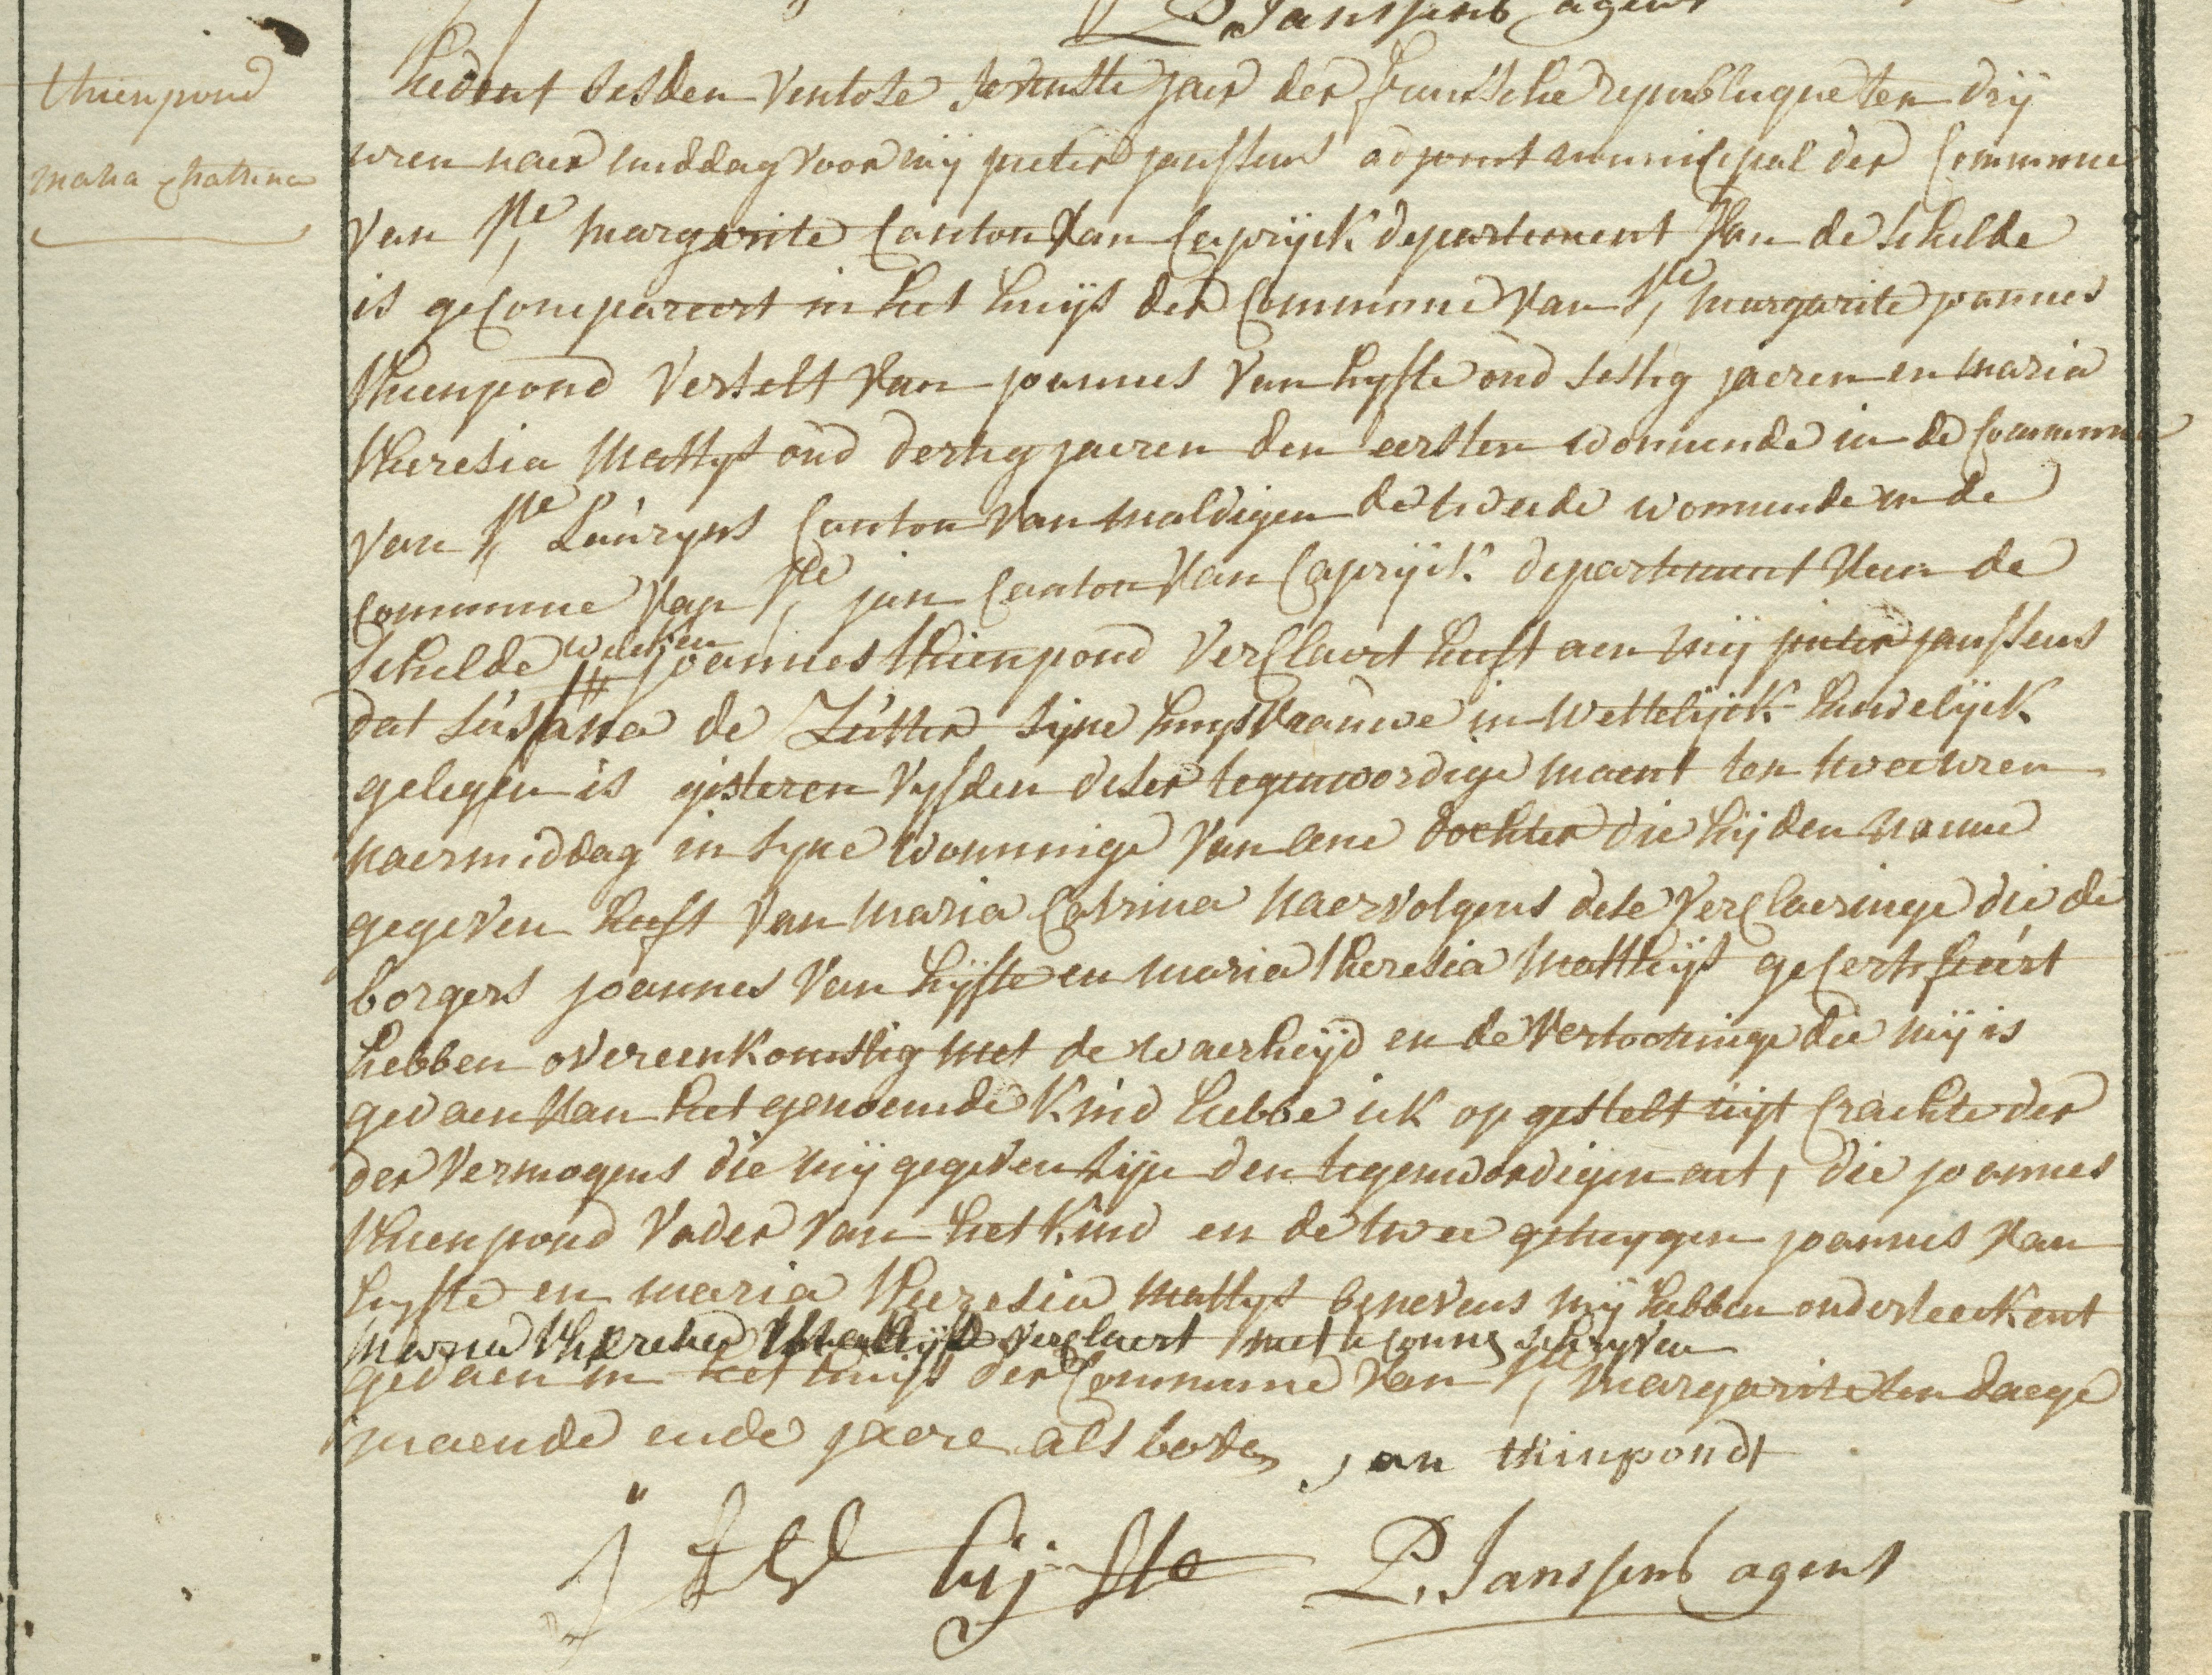 P. Janssens agent
thienpond
maria Chatrina
hedent sesden ventose sevenste jaer der fransche republiqueten drij
uren naer middag voor mij pieter janssens adjoint municipal der Commune
van Ste margarite Canton van Caprijck departement van de schelde
is gecompareert in het huijs der Commune van Ste margarite joannes
thienpond verselt van joannes van hyfte oud sestig jaeren en maria
theresia Mattys oud dertig jaeren den eersten woonende in de Commune
van Ste Lauryns Canton van maldigen de tweede woonende in de
Commune van Ste jan Canton van Caprijck departement van de
schelde welcken joannes thienpond verclaert heeft aen mij pieter janssens
dat susanna de Zutter sijne huijsvrauwe in wettelijck huwelijck
gelegen is gisteren vyfden deser tegenwordige maent ten twee uren
naermiddag in syne wonninge van eene dochter die hij den naeme
gegeven heeft van maria Catrina naervolgens dese verclaeringe die de
borgers joannes van hijfte en maria theresia Matthijs gecertifieert
hebben overeenkomstig met de waerheijd en de vertooninge die mij is
gedaen van het genoemde kind hebbe ick op gestelt uijt crachte der
der vermogens die mij gegeven sijn den tegenwordigen act, die joannes
thienpond vader van het kind en de twee getuygen joannes van
hyfte en maria theresia Mattys benevens mij hebben onderteekent
maria theresia Matthijs verclaert niet te connen schryven
gedaen in het huijs der Commune van Ste margarite ten daege
maende ende jaere als boven jan thinpondt
J hijfte P. Janssens agent